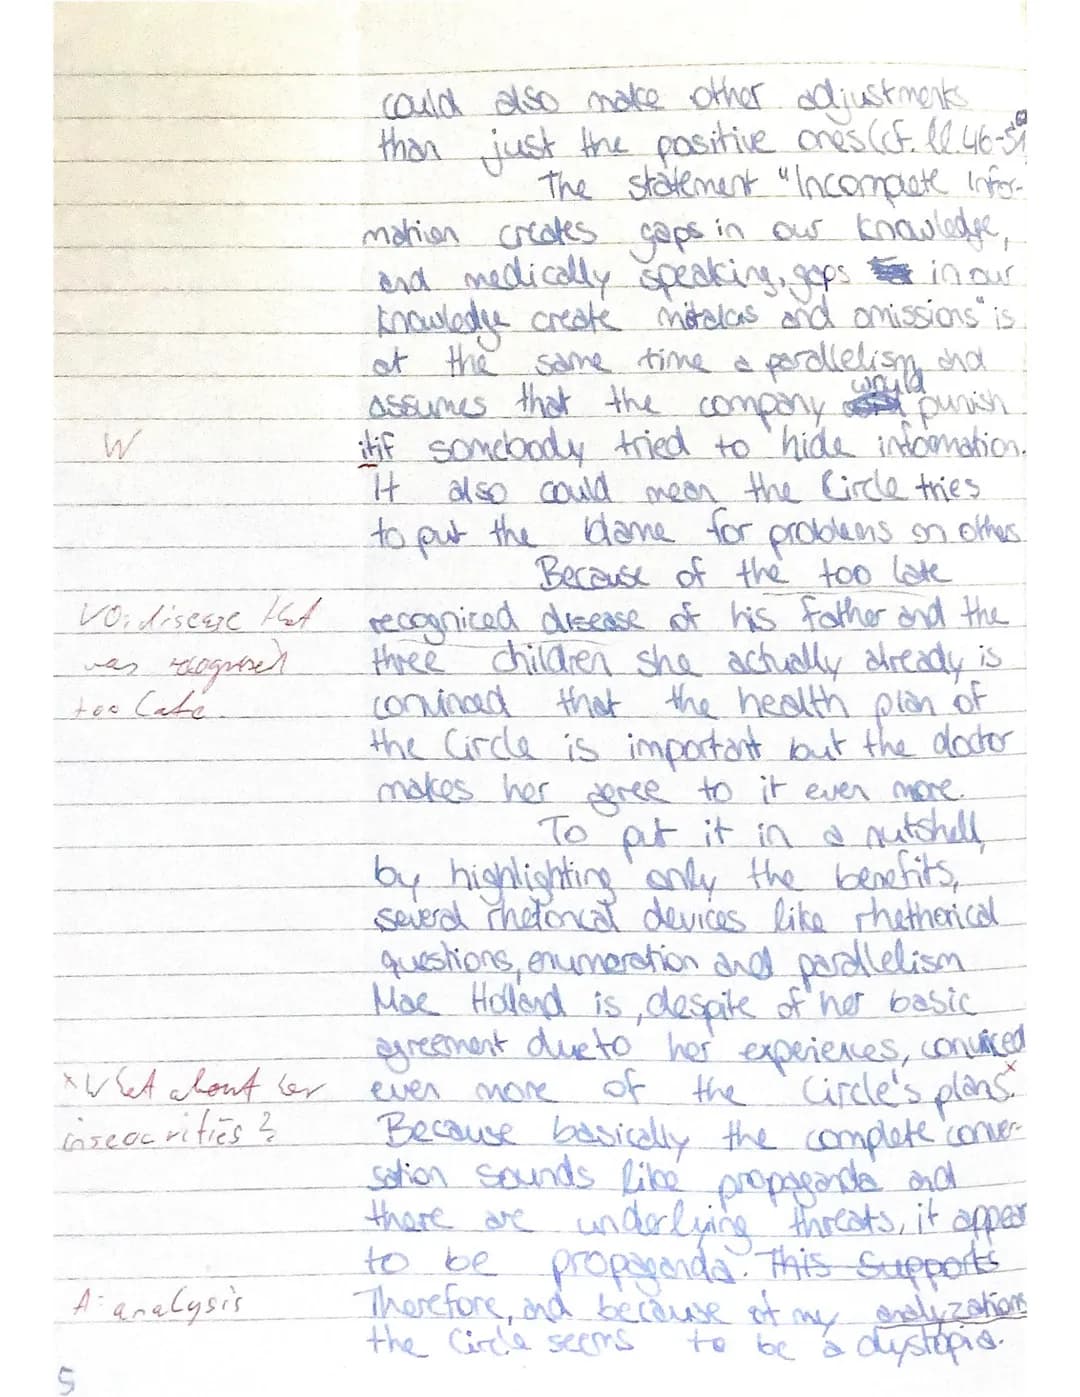 could also make other adjustments
than just the positive ones (cf. ll. 46-51
The statement "Incomplete Infor-
mation creates gaps in our knowledge,
and medically speaking, gaps in our
knowledge create mistakes and omissions" is
at the same time a parallelism and
assumes that the company would punish
W
it if somebody tried to hide information.
It also could mean the Circle tries
to put the blame for problems on others
Because of the too late
VO: disease that
recogniced disease of his father and the
was recognised
three children she actually already is
too late.
convinced that the health plan of
the Circle is important but the doctor
makes her agree to it even more.
To put it in a nutshell,
by highlighting only the benefits,
several rhetorical devices like rhetherical
questions, enumeration and parallelism
Mae Holland is, despite of her basic
agreement due to her experiences, convinced
x What about her
even more of the Circle's plans.x
insecurities?
Because basically the complete conver-
sation sounds like propaganda and
there are underlying threats, it appear
to be propaganda. This supports
A: analysis
Therefore, and because of my analyzations
the Circle seems to be a dystopia.
5